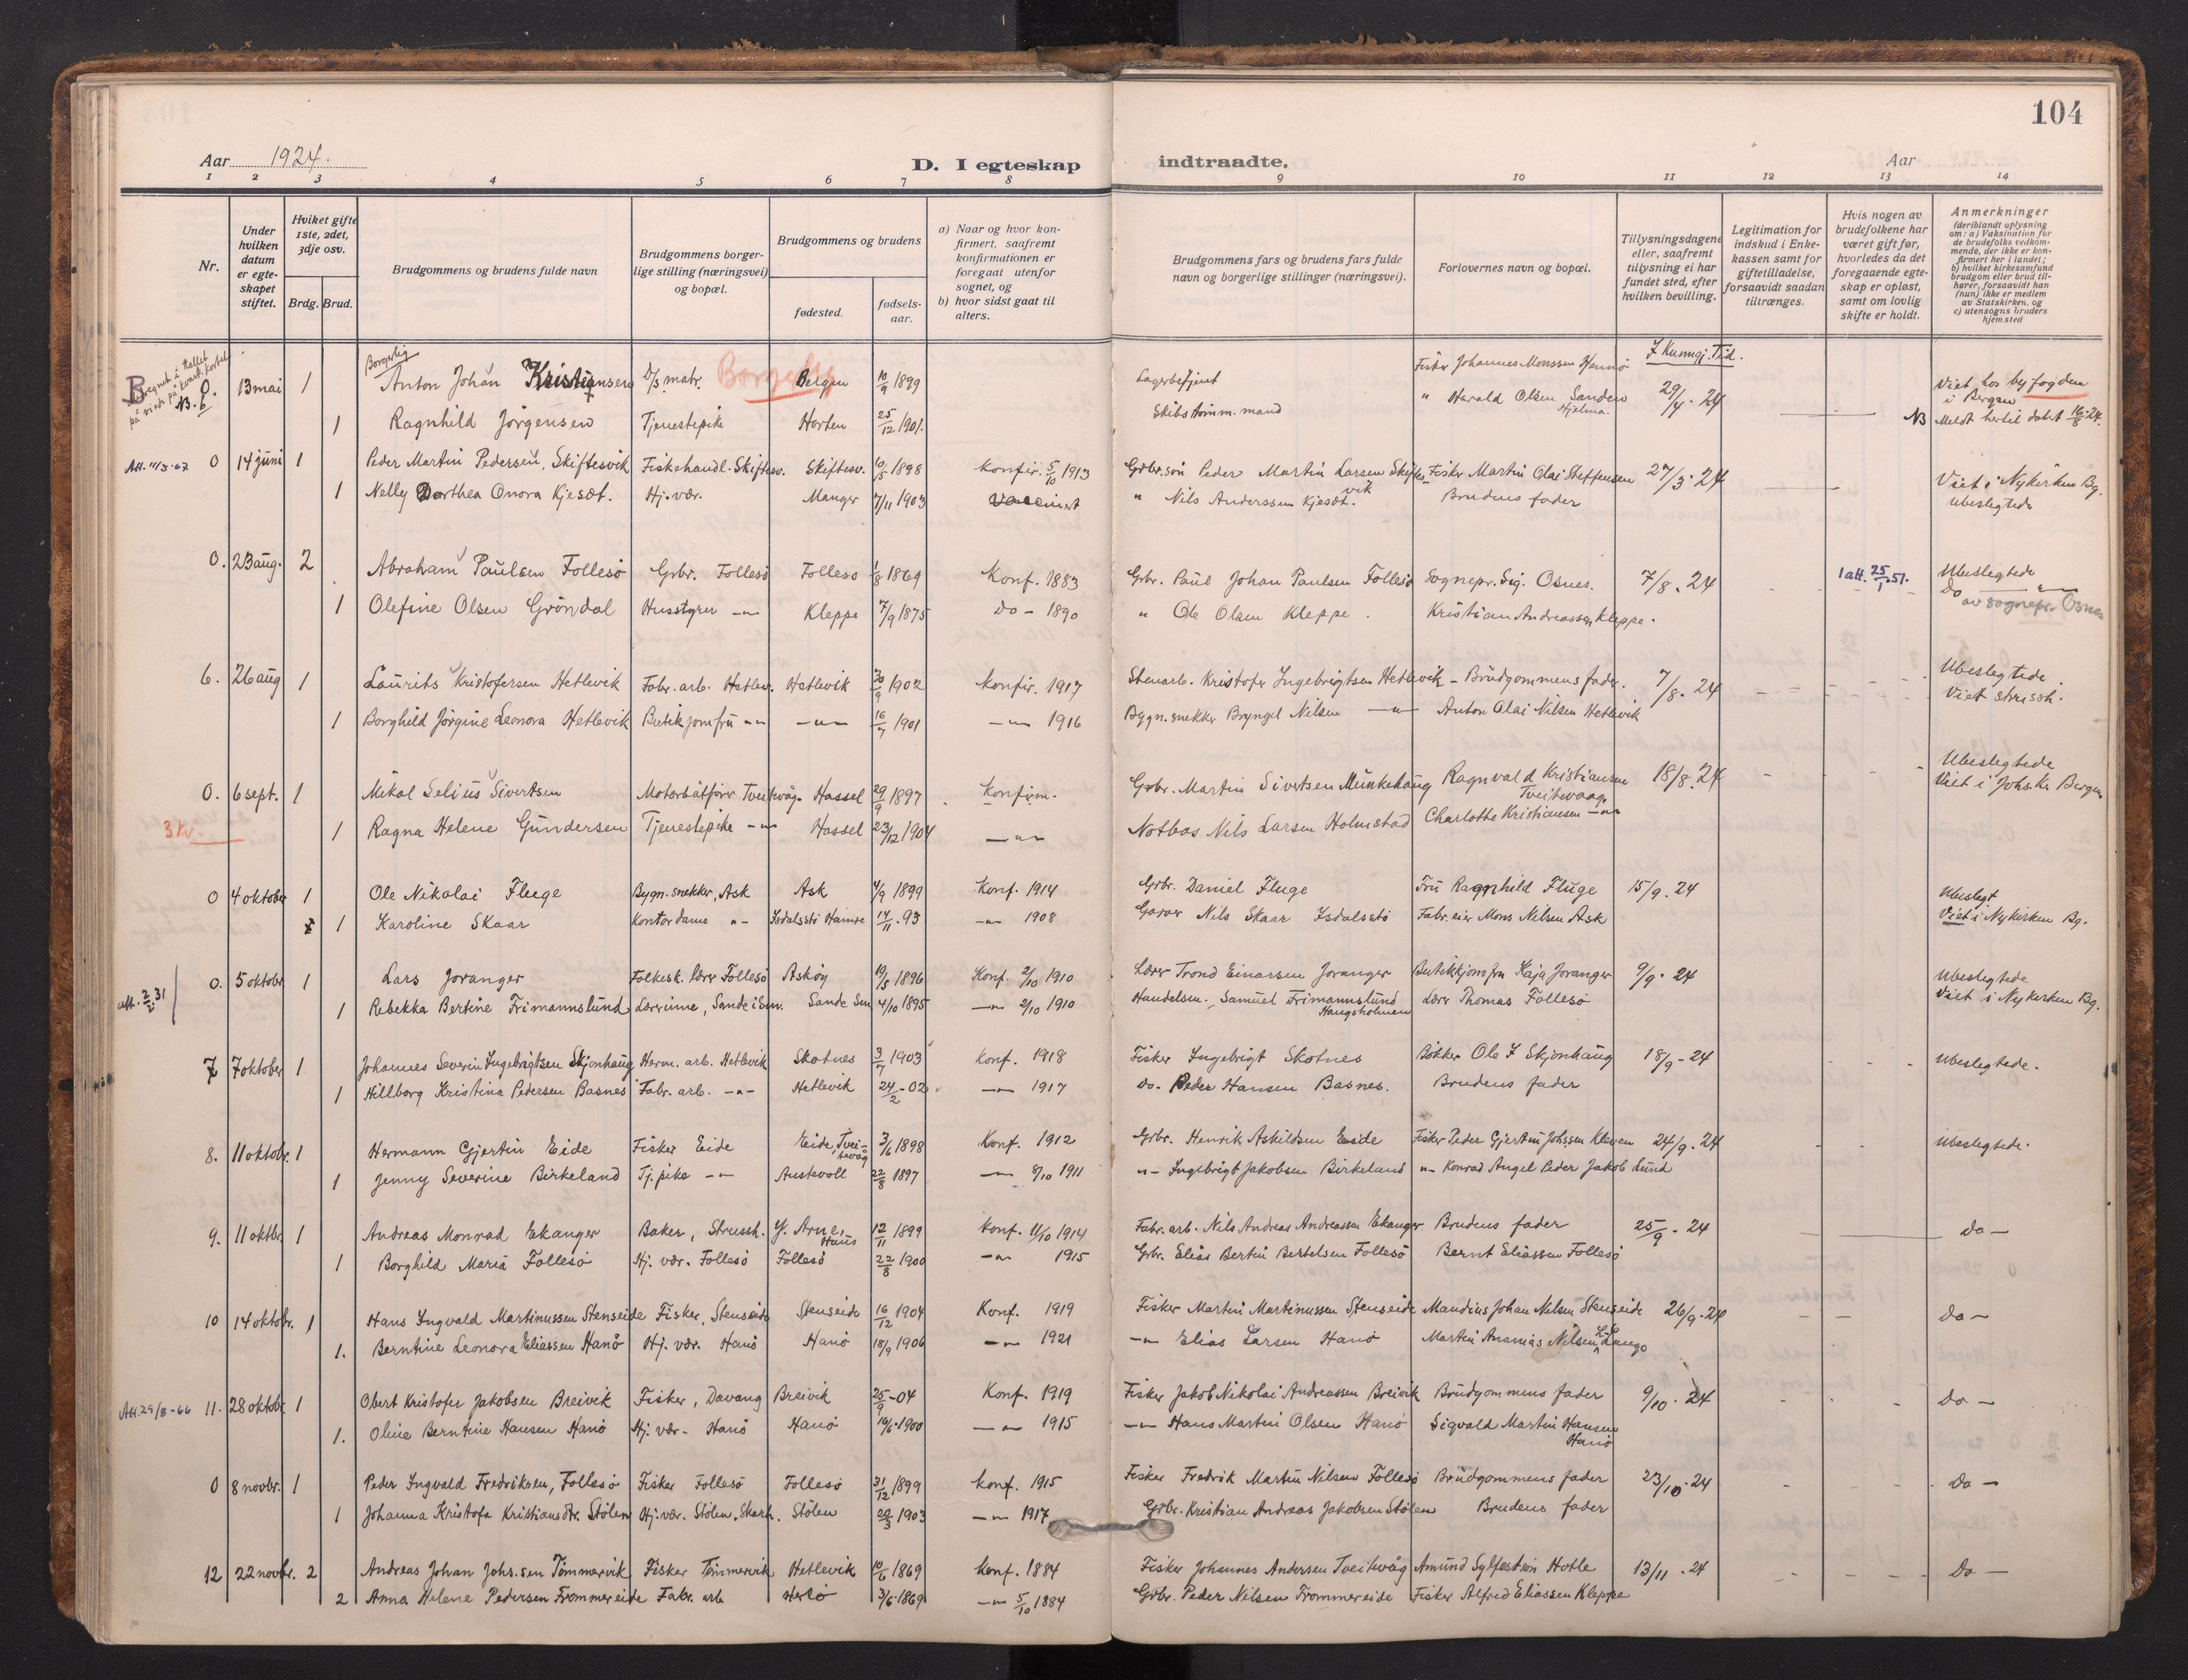 104
Aar 1924.
D. I egteskap indtraadte.
Aar
1 2 3 4 5 6 7 8 9 10 11 12 13 14
Nr.
Under hvilken datum er egteskapet stiftet.
Hviket gifte 1ste, 2det, 3dje osv.
Brdg. Brud.
Brudgommens og brudens fulde navn
Brudgommens borgerlige stilling (næringsvei) og bopæl.
Brudgommens og brudens
fødested.
fødselsaar.
a) Naar og hvor konfirmert, saafremt konfirmationen er foregaat utenfor sognet, og
b) hvor sidst gaat til alters.
Brudgommens fars og brudens fars fulde navn og borgerlige stillinger (næringsvei).
Forlovernes navn og bopæl.
Tillysningsdagene eller, saafremt tillysning ei har fundet sted, efter hvilken bevilling.
Legitimation for indskud i Enkekassen samt for giftetilladelse, forsaavidt saadan tiltrænges.
Hvis nogen av brudefolkene har været gift før, hvorledes da det foregaaende egteskap er opløst, samt om lovlig skifte er holdt.
Anmerkninger (deriblandt oplysning om: a) Vaksination for de brudefolks vedkommende, der ikke er konfirmert her i landet; b) hvilket kirkesamfund brudgom eller brud tilhører, forsaavidt han (hun) ikke er medlem av Statskirken, og c) utensogns bruders hjemsted
Borgerlig
0. 13 mai 1 Anton Johan Kristiansen D/S matr. Borgerlig Bergen 10/9 1899 Lagerbetjent Fisker Johannes Monssen Hanø I Kunngj. Tid. 29/4-24 Viet hos byfogden i Bergen
1 Ragnhild Jørgensen Tjenestepike Horten 25/12 1901. Skibstømm.mand " Harald Olsen Sanden Hjelma. NB Meldt hertil datert 16/8-24.
Att. 11/3-67 0 14 juni 1 Peder Martin Pedersen, Skiftesvik Fiskehandl. Skiftesv. Skiftesv. 10/5 1898 Konfir. 5/10 1913 Grbr.søn Peder Martin Larsen Skiftesvik Fisker Martin Olai Steffensen 27/3-24 Viet i Nykirken Bg.
1 Nelly Dorthea Onora Kjesæt. Hj. vær. Manger 7/11 1903 Vaccinert " Nils Anderssen Kjesæt. Brudens fader Ubeslegtede
0. 23 aug. 2 Abraham Paulsen Follesø Grbr. Follesø Follesø 1/8 1869 Konf. 1883 Grbr. Paul Johan Paulsen Follesø Sognepr. Sig. Osnes. 7/8. 24 1 att. 25/1 51. Ubeslegtede
1 Olefine Olsen Grøndal Husstyrer -"- Kleppe 7/9 1875 Do - 1890 " Ole Olsen Kleppe. Kristian Andreassen Kleppe. Do -"- av sognepr. Osnes
6. 26 aug 1 Laurits Kristofersen Hetlevik Fabr. arb. Hetlev. Hetlevik 20/9 1902 Konfir. 1917 Stenarb. Kristofer Ingebrigtsen Hetlevik - Brudgommens fader. 7/8. 24 Ubeslegtede.
1 Borghild Jørgine Leonora Hetlevik Butikjomfru -"- -"- 16/7 1901 -"- 1916 Bygn.snekker Bryngel Nilsen -"- Anton Olai Nilsen Hetlevik Viet strussh.
0. 6 sept. 1 Mikal Selius Sivertsen Motorbåtfører Tveitevåg. Hassel 29/9 1897 Konfirm. Grbr. Martin Sivertsen Munkehaug Ragnvald Kristiansen Tveitevaag 18/8. 24 Ubeslegtede Viet i Johs. K. Bergen
3 kr.- 1 Ragna Helene Gundersen Tjenestepike -"- Hassel 23/12 1904 -"- Notbas Nils Larsen Holmstad Charlotte Kristiansen -"-
0 4 oktober 1 Ole Nikolai Fluge Bygn. snekker, Ask Ask 4/9 1899 Konf. 1914 Grbr. Daniel Fluge Fru Ragnhild Fluge 15/9. 24 Ubeslegt
1 Karoline Skaar Kontordame -"- Isdalsstø Hamre 14/11. 93 -"- 1908 Garver Nils Skaar Isdalsstø Fabr. eier Mons Nilsen Ask Viet i Nykirken Bg.
att. 2/2 31 0. 5 oktobr 1 Lars Joranger Folkesk. lærer Follesø Askøy 19/5 1896 Konf. 2/10 1910 Lærer Trond Einarsen Joranger Butikkjomfru Kaja Joranger 9/9. 24 Ubeslegtede
1 Rebekka Bertine Frimannslund Lærerinne, Sande i Sun. Sande Sun 4/10 1895 -"- 2/10 1910 Handelsm. Samuel Frimannslund Haugsholmen Lærer Thomas Follesø Viet i Nykirken Bg.
7 7 oktober 1 Johannes Severin Ingebrigtsen Skjonhaug Herm. arb. Hetlevik Skotnes 3/7 1903 Konf. 1918 Fisker Ingebrigt Skotnes Bøkker Ole I Skjonhaug 18/9-24 Ubeslegtede.
1 Hillborg Kristina Pedersen Basnes Fabr. arb. -"- Hetlevik 24/2-02 -"- 1917 Do. Peder Hansen Basnes. Brudens fader
8. 11 oktobr. 1 Hermann Gjertin Eide Fisker Eide Eide, Tveitevåg 3/6 1898 Konf. 1912 Grbr. Henrik Askildsen Eide Fisker Peder Gjertin Johssen Kleven 24/9. 24 Ubeslegtede.
1 Jenny Severine Birkeland Tj. pike -"- Austevoll 22/8 1897 -"- 8/10 1911 "- Ingebrigt Jakobsen Birkeland "- Konrad Angel Peder Jakob Lund
9. 11 oktbr. 1 Andreas Monrad Ekanger Baker, Strussh. Y. Arne, Haus 12/11 1899 Konf. 11/10 1914 Fabr. arb. Nils Andreas Andreassen Ekanger Brudens fader 25/9-24 Do -
1 Borghild Maria Follesø Hj. vær. Follesø Follesø 22/8 1900 -"- 1915 Grbr. Elias Bertin Bertelsen Follesø Bernt Eliassen Follesø
10 14 oktobr. 1 Hans Ingvald Martinussen Stenseide Fisker, Stenseide Stenseide 16/12 1904 Konf. 1919 Fisker Martin Martinussen Stenseide Maudius Johan Nilsen Stenseide 26/9-24 Do -
1. Berntine Leonora Eliassen Hanø Hj. vær. Hanø Hanø 18/9 1906 -"- 1921 -"- Elias Larsen Hanø Martin Ananias Nilsen L. Langø
Att. 29/8-66 11. 28 oktobr 1 Obert Kristofer Jakobsen Breivik Fisker, Davang Breivik 25/9-04 Konf. 1919 Fisker Jakob Nikolai Andreassen Breivik Brudgommens fader 9/10. 24 Do -
1. Oline Berntine Hansen Hanø Hj. vær. Hanø Hanø 19/6. 1900 -"- 1915 -"- Hans Martin Olsen Hanø Sigvald Martin Hansen Hanø
0 8 novbr. 1 Peder Ingvald Fredriksen, Follesø Fisker Follesø Follesø 31/12 1899 Konf. 1915 Fisker Fredrik Martin Nilsen Follesø Brudgommens fader 23/10. 24 Do -
1 Johanna Kristofa Kristiansdtr. Stølen Hj. vær. Stølen. Skarh. Stølen 20/3 1903 -"- 1917 Grbr. Kristian Andreas Jakobsen Stølen Brudens fader
12 22 novbr. 2 Andreas Johan Johs.sen Tømmervik Fisker Tømmervik Hetlevik 10/6 1869 Konf. 1884 Fisker Johannes Andersen Tveitevåg Amund Sylfestsøn Hotle 13/11. 24 Do -
2 Anna Helene Pedersen Frommereide Fabr. arb Herlø 3/6. 1869 -"- 5/10 1884 Grbr. Peder Nilsen Frommereide Fisker Alfred Eliassen Kleppe